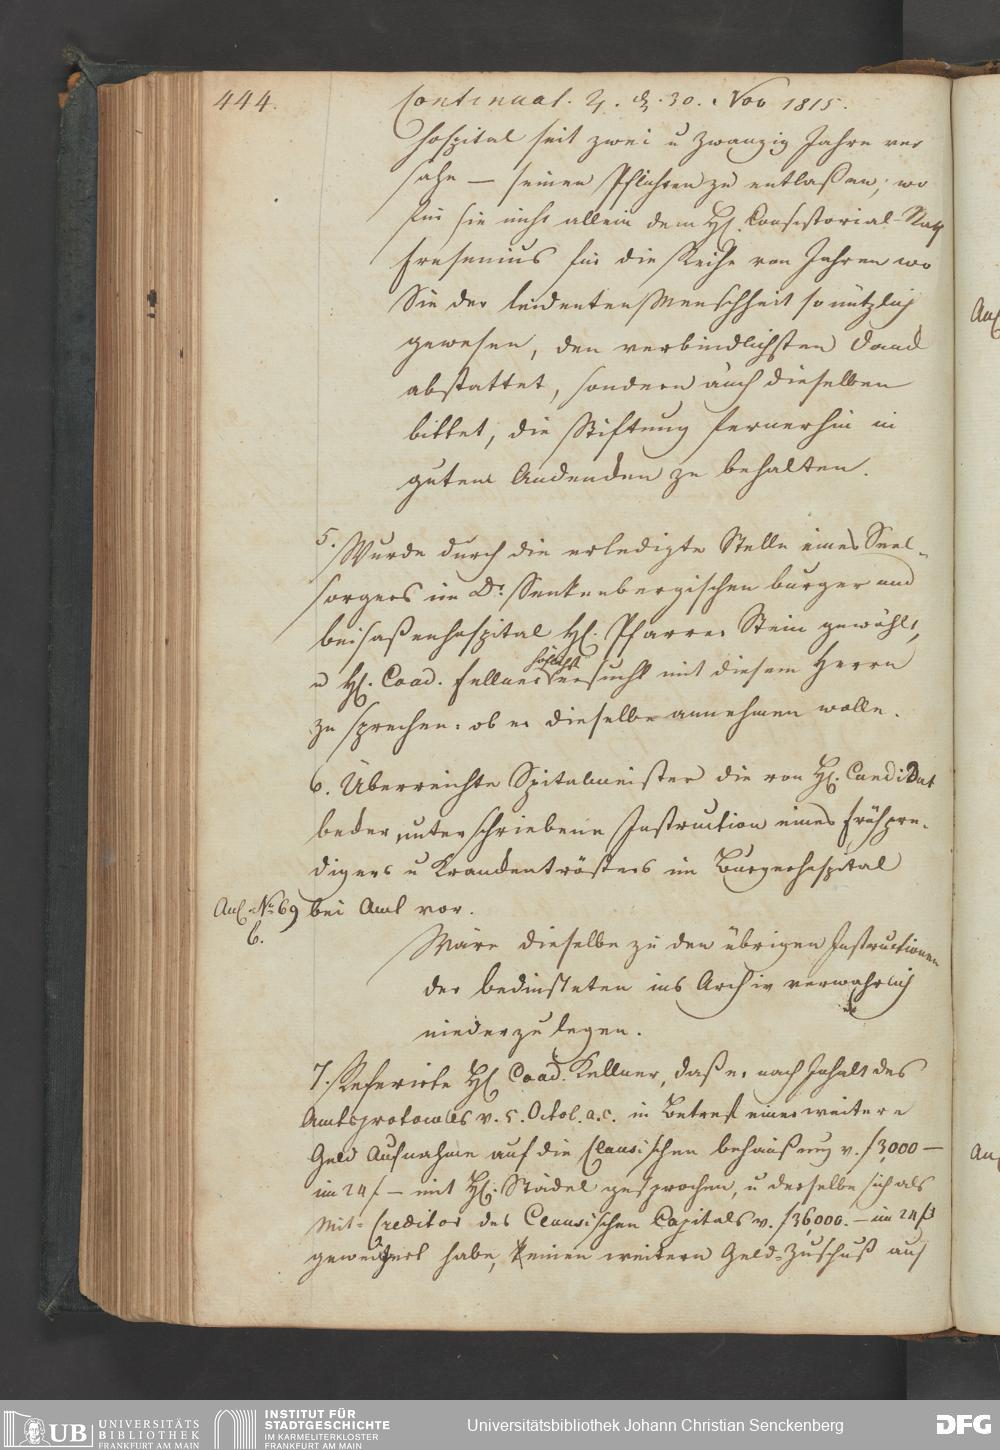 444.
Continuat. 4. d. 30. Nov 1815.
hospital seit zwei u zwanzig Jahre ver
sahe — seiner Pflichten zu entlaßen, wo
für sie nicht allein dem H. Consistorial-Rath
Fresenius für die Reihe von Jahren wo
Sie der leidenten Menschheit so nützlich
gewesen, den verbindlichsten Dank
abstattet, sondern auch dieselben
bittet, die Stiftung fernerhin in
gutem Andenken zu behalten.
5. Wurde durch die erledigte Stelle eines Seel-
sorgers im Dr. Senkenbergischen burger und
beisaßenhospital H. Pfarrer Stein gewählt,
u H. Coad. Kellner ersucht mit diesem Herrn
zu sprechen: ob er dieselbe annehmen wolle.
6. Überreichte Spitalmeister die von H. Candidat
beder unterschriebene Instruction eines Frühpre-
digers u Krankentrösters im Burgerhospital
Anl. No. 69 bei Amt vor.
b.
Wäre dieselbe zu den übrigen Instructionen
der bediensteten ins Archiv verwahrlich
niederzulegen.
7. Referirte H Coad. Kellner, daß er nach Inhalt des
Amtsprotocolls v. 5. Octob. a. c. in Betref einer weitere
Geld Aufnahme auf die Clausischen behaußung v. f 3,000 —
im 24 f. — mit H. Städel gesprochen, u derselbe sich als
Mit-Creditor des Clausischen Capitals v. f 36,000. — im 24 f
geweigert habe, keinen weitern Geld-Zuschuß auf
Anl
Anl
UB UNIVERSITÄTS
BIBLIOTHEK
FRANKFURT AM MAIN
INSTITUT FÜR
STADTGESCHICHTE
IM KARMELITERKLOSTER
FRANKFURT AM MAIN
Universitätsbibliothek Johann Christian Senckenberg
DFG